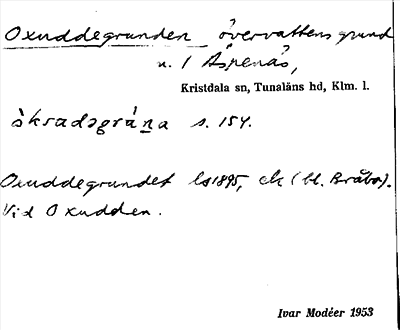 Oxuddegrunden övervattensgrund
n. l Äspenäs,
Kristdala sn, Tunaläns hd, Klm. l.
s. 154.
Oxuddegrundet ls1895, ek (bl. Bråbo).
Vid Oxudden.
Ivar Modéer 1953